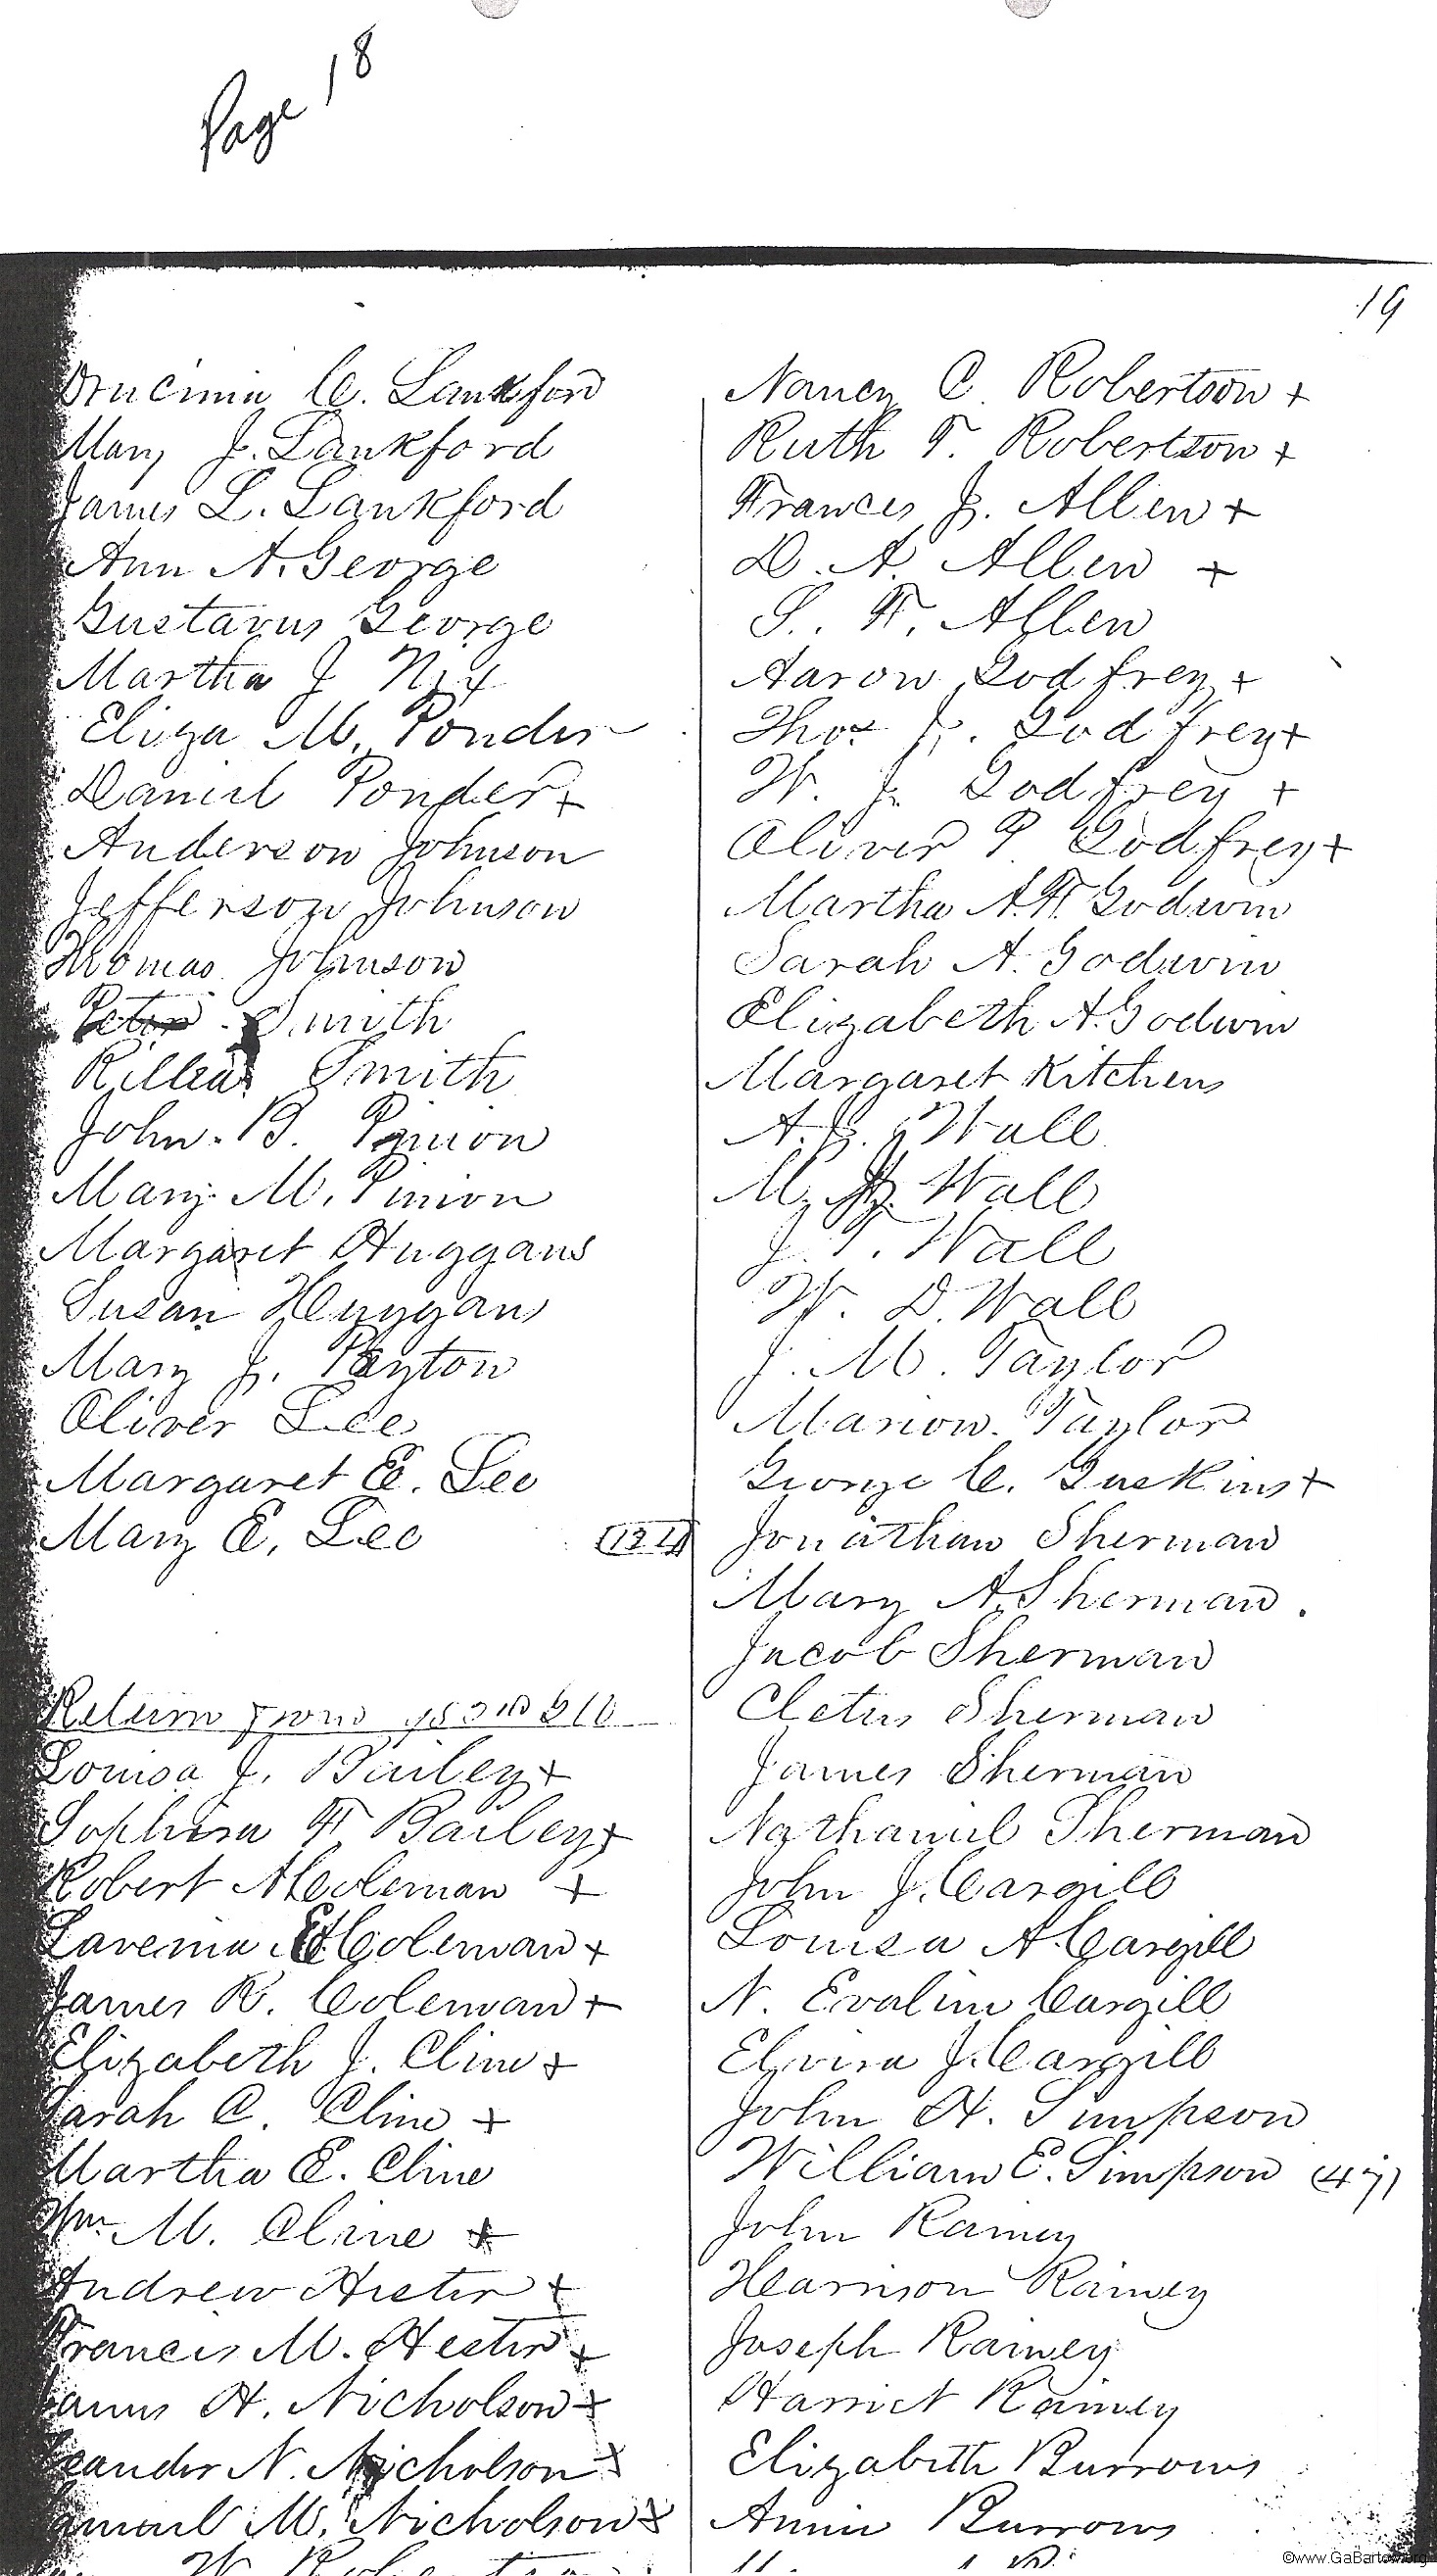 Page 18
19
C. Lankford
Mary J. Lankford
James L. Lankford
Ann A. George
Gustavus George
Martha J Nix
Eliza M. Ponder
Daniel Ponder +
Anderson Johnson
Jefferson Johnson
Thomas Johnson
Peter Smith
Smith
John. B. Pinion
Mary M. Pinion
Margaret Huggans
Susan Huggans
Mary J. Payton
Oliver Lee
Margaret E. Lee
Mary E. Lee
Return from
Louisa J. Bailey +
F Bailey +
Robert A Coleman +
Coleman +
James R. Coleman +
Elizabeth J. Cline +
Sarah C. Cline +
Martha E. Cline
Wm M. Cline +
Andrew Hester +
Francis M. Hester +
James H. Nicholson +
Leander N. Nicholson +
Samuel M. Nicholson +
Nancy C. Robertson +
Ruth F. Robertson +
Frances J. Allen +
D. A. Allen +
S. F. Allen
Aaron Godfrey +
Thos J. Godfrey +
W. J. Godfrey +
Oliver P Godfrey +
Martha A. F. Godwin
Sarah A. Godwin
Elizabeth A. Godwin
Margaret Kitchens
A. Wall
M. Wall
J. T. Wall
W. D. Wall
J. M. Taylor
Marion Taylor
George C. Gaskins +
Jonathan Sherman
Mary A. Sherman.
Jacob Sherman
Cletus Sherman
James Sherman
Nathaniel Sherman
John J. Cargill
Louisa A. Cargill
N. Evaline Cargill
Elvira J. Cargill
John H. Simpson
William E. Simpson (47)
John Rainey
Harrison Rainey
Joseph Rainey
Harriet Rainey
Elizabeth Burrows
Annie Burrows
©www.GaBartow.org